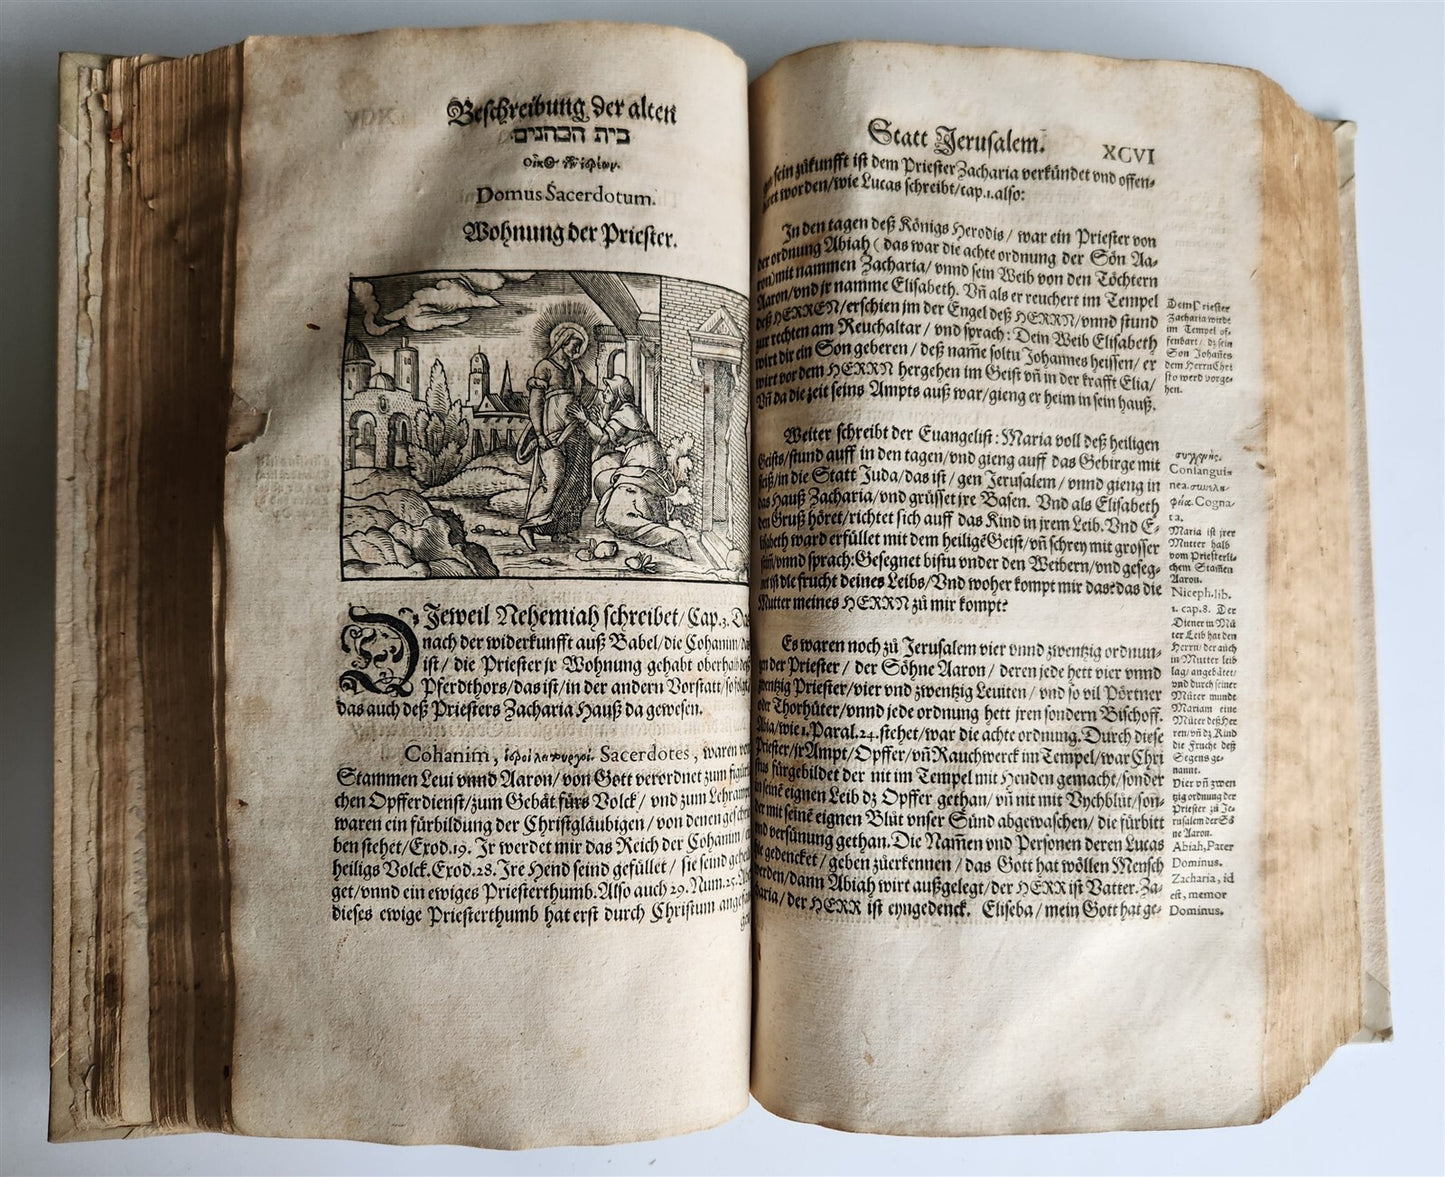 Beschreibung der alten
בית הכהנים.
Domus Sacerdotum.
Wohnung der Priester.
DJeweil Nehemiah schreibet/ Cap.3. Das
nach der widerkunfft auß Babel/die Cohanim/das
ist/ die Priester jr Wohnung gehabt oberhalb deß
Pferdthors/das ist/in der andern Vorstatt/so folgt/
das auch deß Priesters Zacharia Hauß da gewesen.
Cohanim, ἱεροὶ λειτουργοὶ. Sacerdotes, waren von
Stammen Leui vnnd Aaron/ von Gott verordnet zum figürli
chen Opfferdienst/zum Gebät fürs Volck/ vnd zum Lehrampt
waren ein fürbildung der Christgläubigen/ von denen geschri
ben stehet/Exod.19. Jr werdet mir das Reich der Cohanim/
heiligs Volck.Exod.28. Jre Hend seind gefüllet/ sie seind geheili
get/vnnd ein ewiges Priesterthumb.Also auch 29.Num.25.
dieses ewige Priesterthumb hat erst durch Christum angefan
gen
Statt Jerusalem.
XCVI
sein zůkunfft ist dem Priester Zacharia verkündet vnd offen-
baret worden/wie Lucas schreibt/cap.1.also:
In den tagen deß Königs Herodis/ war ein Priester von
der ordnung Abiah ( das war die achte ordnung der Sön Aa-
ron)mit nammen Zacharia/ vnnd sein Weib von den Töchtern
Aaron/vnd jr namme Elisabeth. Vñ als er reuchert im Tempel
deß HERREN/erschien jm der Engel deß HERRN/vnnd stund
zur rechten am Reuchaltar / vnd sprach: Dein Weib Elisabeth
wirt dir ein Son geberen / deß nam̃e soltu Johannes heissen/ er
wirt vor dem HERRN hergehen im Geist vñ in der krafft Elia/
Vñ da die zeit seins Ampts auß war/gieng er heim in sein hauß.
Weiter schreibt der Euangelist: Maria voll deß heiligen
Geists/stund auff in den tagen/vnd gieng auff das Gebirge mit
fleiß/in die Statt Juda/das ist / gen Jerusalem / vnnd gieng in
das Hauß Zacharia/vnd grüsset jre Basen. Vnd als Elisabeth
den Gruß höret/richtet sich auff das Kind in jrem Leib. Vnd E-
lisabeth ward erfüllet mit dem heiligẽ Geist/ vñ schrey mit grosser
stim̃/vnnd sprach:Gesegnet bistu vnder den Weibern/vnd geseg-
net ist die frucht deines Leibs/Vnd woher kompt mir das?das die
Mutter meines HERRN zů mir kompt?
Es waren noch zů Jerusalem vier vnnd zwentzig ordnun-
gen der Priester / der Söhne Aaron / deren jede hett vier vnnd
zwentzig Priester/vier vnd zwentzig Leuiten / vnd so vil Pörtner
oder Thorhüter/vnnd jede ordnung hett jren sondern Bischoff.
Abia/wie 1.Paral.24.stehet/war die achte ordnung. Durch diese
Priester/jr Ampt/Opffer/vñ Rauchwerck im Tempel/war Chri
stus fürgebildet der nit im Tempel mit Henden gemacht/sonder
in seinẽ eignen Leib dz Opffer gethan/ vñ nit mit Vychblůt/son-
der mit seinẽ eignen Blůt vnser Sünd abgewaschen/ die fürbitt
vnd versünung gethan. Die Nam̃en vnd Personen deren Lucas
hie gedencket / geben zůerkennen / das Gott hat wöllen Mensch
werden/dann Abiah wirt außgelegt/der HERR ist Vatter. Za-
charia/ der HERR ist eyngedenck. Eliseba/ mein Gott hat ge-
Dem Priester
Zacharia wirdt
im Tempel of-
fenbart/ dz sein
Son Johañes
dem Herrn Chri
sto werd vorge-
hen.
συγγενής.
Consangui-
nea.
Cogna-
ta.
Maria ist jrer
Mutter halb
vom Priesterli-
chem Stam̃en
Aaron.
Niceph.lib.
1. cap.8. Der
Diener in Mů
ter Leib hat den
Herrn/ der auch
in Mutter leib
lag/ angebätet/
vnd durch seiner
Můter munde
Mariam eine
Můter deß Her
ren/vñ dz Kind
die Frucht deß
Segens ge-
nannt.
Vier vñ zwen
tzig ordnung der
Priester zů Je-
rusalem der Sö
ne Aaron.
Abiah,Pater
Dominus.
Zacharia, id
est, memor
Dominus.